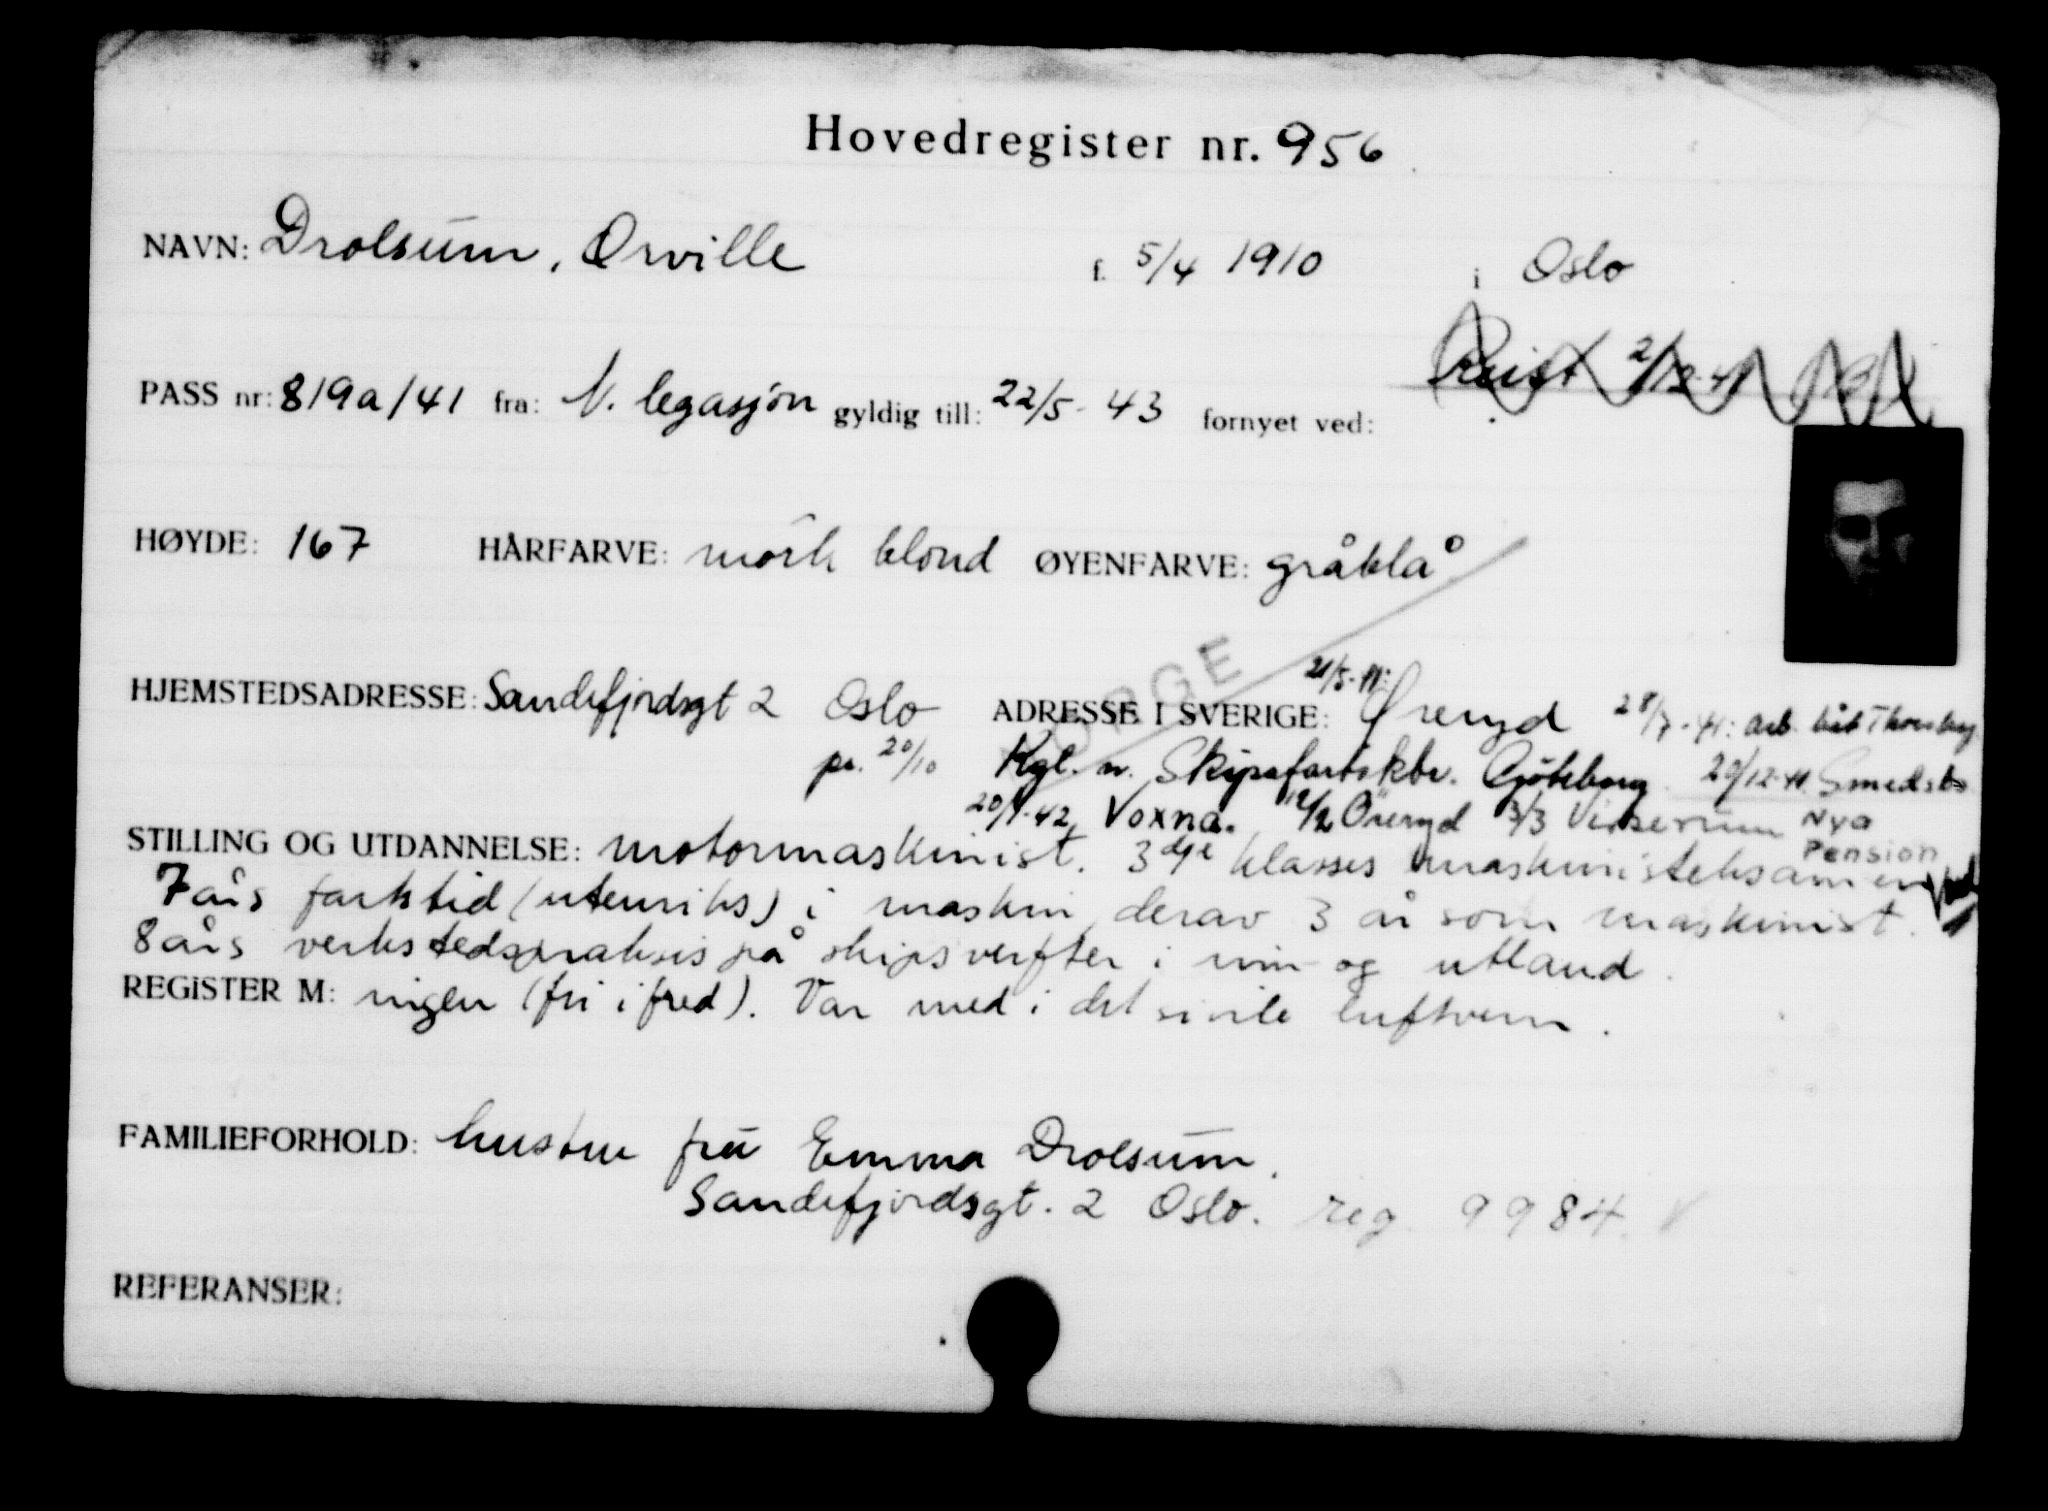 Hovedregister nr. 956
NAVN: Drolsum, Orville f. 5/4 1910 i Oslo
Reist 2/12-41
PASS nr: 819a/41 fra: N. legasjon gyldig till: 22/5-43 fornyet ved:
HØYDE: 167 HÅRFARVE: mörk blond ØYENFARVE: gråblå
NORGE
HJEMSTEDSADRESSE: Sandefjordsgt 2 Oslo ADRESSE I SVERIGE: 21/5-41: Öreryd 28/7-41: arb. båt Thorsborg
pr. 20/10 Kgl. n. Skipsfartsktr. Gjöteborg 20/12-41 Smedsbo
20/1-42, Voxna. 12/2 Öreryd 3/3 Virserum Nya
Pension
STILLING OG UTDANNELSE: motormaskinist. 3dje klasses maskinisteksamen
7 års fartstid (utenriks) i maskin, derav 3 år som maskinist.
8 års verkstedspraksis på skipsverfter i inn- og utland.
REGISTER M: ingen (fri i fred). Var med i det sivile luftvern.
FAMILIEFORHOLD: hustru fru Emma Drolsum.
Sandefjordsgt. 2 Oslo. reg. 9984. V
REFERANSER: